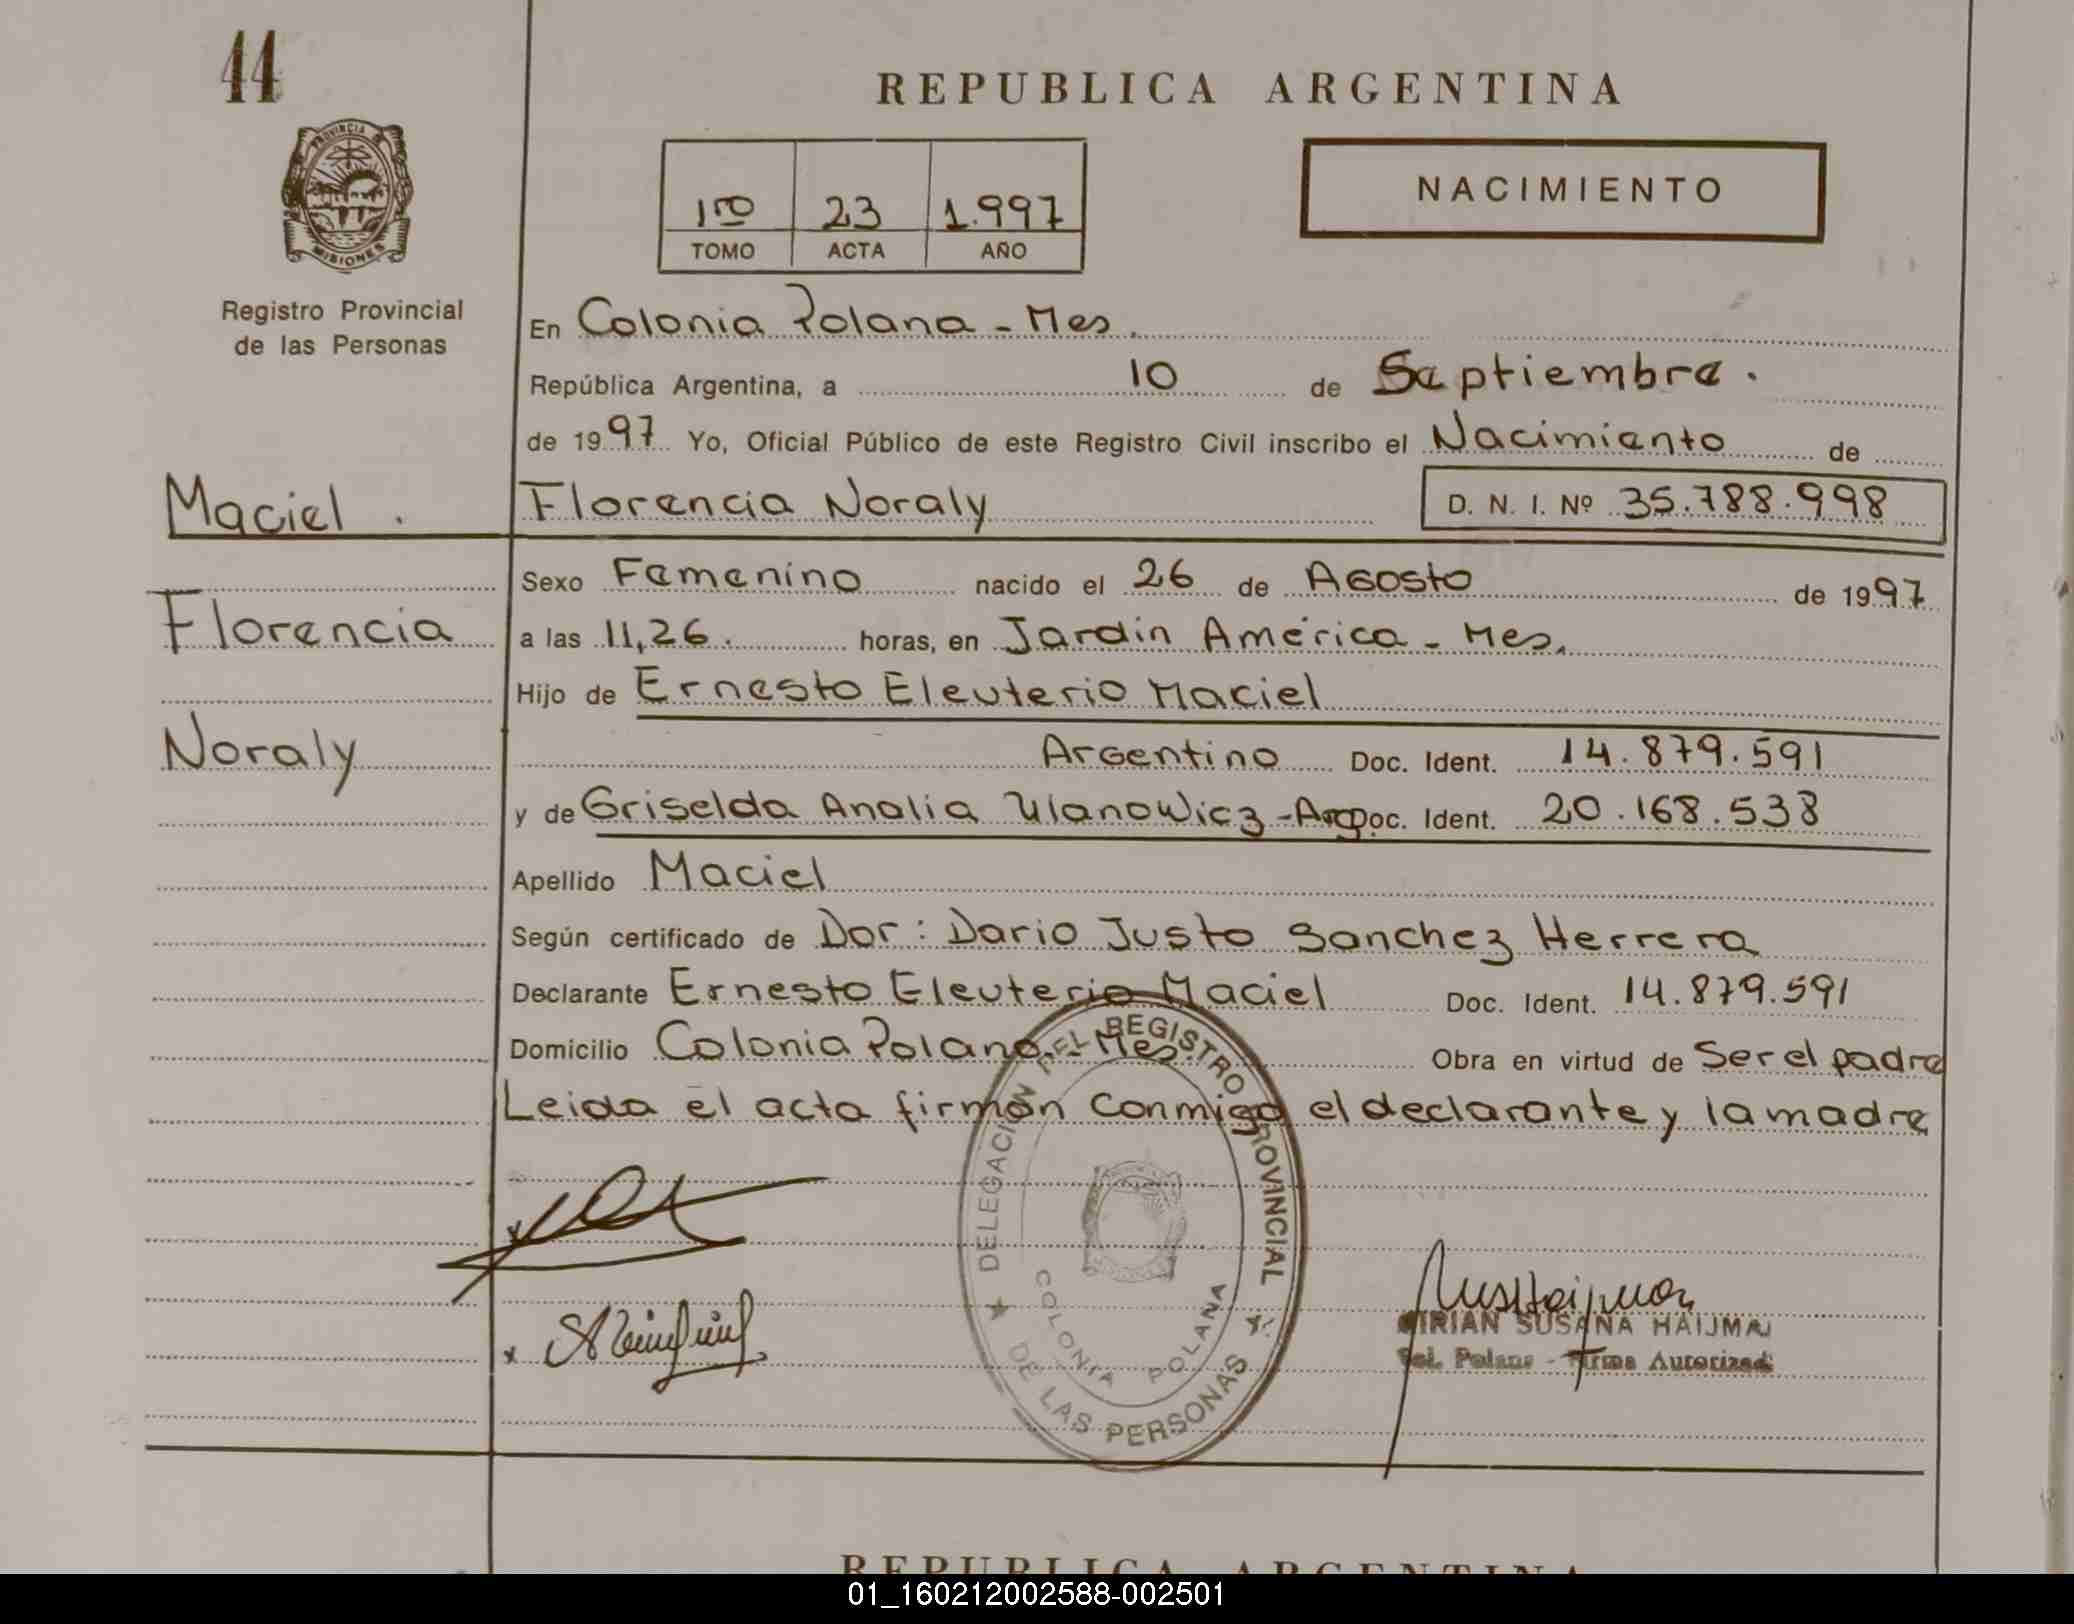 44
REPUBLICA ARGENTINA
PROVINCIA DE MISIONES
NACIMIENTO
1ro 23 1.997
TOMO ACTA AÑO
Registro Provincial
de las Personas
En Colonia Polana - Mes.
República Argentina, a 10 de Septiembre.
de 1997 Yo, Oficial Público de este Registro Civil inscribo el Nacimiento de
Maciel. Florencia Noraly D. N. I. Nº 35.788.998
Sexo Femenino nacido el 26 de Agosto de 1997
Florencia a las 11,26. horas, en Jardín América - Mes.
Hijo de Ernesto Eleuterio Maciel
Noraly Argentino Doc. Ident. 14.879.591
y de Griselda Analia Ulanowicz - Arg. Doc. Ident. 20.168.538
Apellido Maciel
Según certificado de Dor: Dario Justo Sanchez Herrera
Declarante Ernesto Eleuterio Maciel Doc. Ident. 14.879.591
Domicilio Colonia Polana - Mes. Obra en virtud de Ser el padre
Leida el acta firman conmigo el declarante y la madre
DELEGACION DEL REGISTRO PROVINCIAL DE LAS PERSONAS
COLONIA POLANA
MIRIAN SUSANA HAIJMAN
Col. Polana - Firma Autorizada
REPUBLICA ARGENTINA
01_160212002588-002501